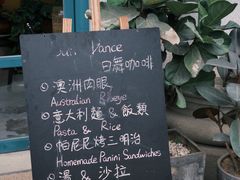 Vance
白舞咖啡
◎澳洲肉眼
Australian Ribeye
◎意大利麵&飯類
Pasta & Rice
◎帕尼尼烤三明治
Homemade Panini Sandwiches
◎湯&沙拉